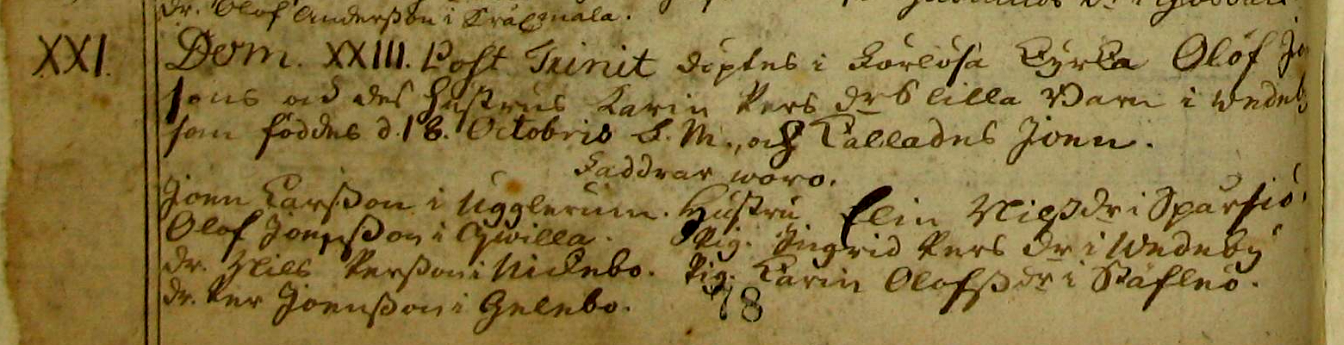 Dr. Olof Anderßon i
XXI. Dom. XXIII. Post Trinit döptes i Förlösa Kyrka Olof Jo
sons och des Hustrus Karin Pers drs lilla Barn i Wedeby
som föddes d. 18. Octobris h. M., och Kallades Joen.
Faddrar woro.
Joen Larßon i Ugglerum. Hustru Elin Nilßdr i Sparsiö.
Olof Joenßon i Qwilla. Pig. Ingrid Pers dr i Wedeby
Dr. Nils Perßon i Nickebo. Pig. Karin Olofsdr i Stäflö.
Dr. Per Joenßon i Gelebo.
78